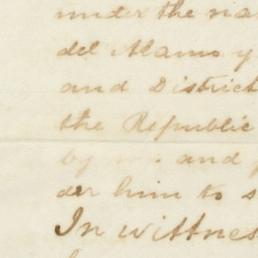 under the na
del Alamo y
and District
the Republic
by me and
der him to s
In wittnes